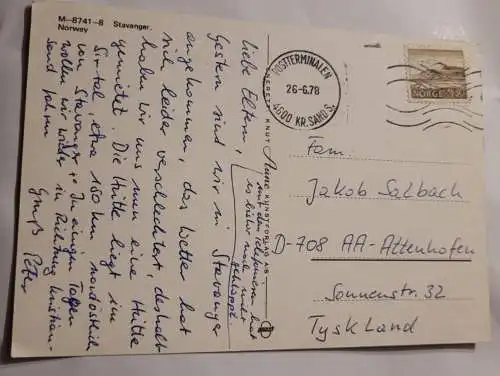 M-8741-8 Stavanger.
Norway
Liebe Eltern,
Gestern sind wir in Stavanger
angekommen, das Wetter hat
sich leider verschlechtert, deshalb
haben wir uns nun eine Hütte
gemietet. Die Hütte liegt im
Sirtal, etwa 150 km nordöstlich
von Stavanger. In einigen Tagen
wollen wir wieder in Richtung Kristian-
sand fahren
Gruß Peter
mit dem Telefonieren hat
es bisher noch nicht
geklappt.
ENERETT
Aune KUNSTFORLAG
POSTTERMINALEN
26-6.78
4600 KR.SAND S.
NORGE
Fam.
Jakob Salbach
D-708 AA-Attenhofen
Sonnenstr. 32
Tyskland